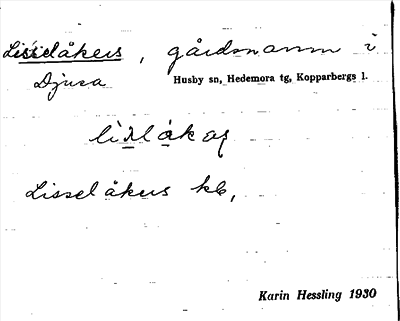 Lisselåkers, gårdsnamn i
Djura
Husby sn, Hedemora tg, Kopparbergs l.
Lisselåkers kb,
Karin Hessling 1930